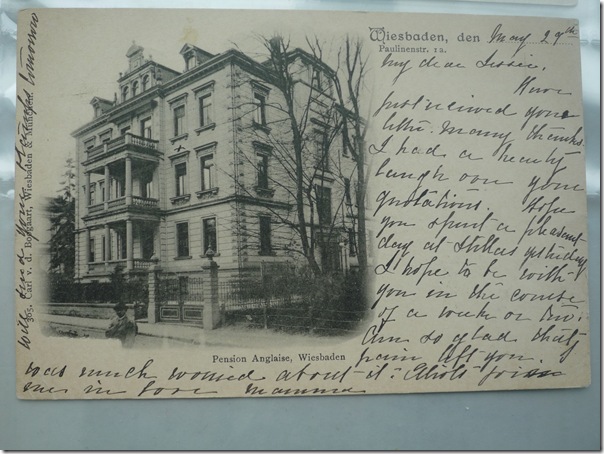 Wiesbaden, den May 29th
Paulinenstr. 1a.
My dear
Have
just received your
letter. Many thanks.
I had a hearty
laugh over your
quotations. Hope
you spent a pleasant
day at yesterday
I hope to be with
you in the course
of a week or two.
Am so glad that
pain left you.
Pension Anglaise, Wiesbaden
was much worried about it.
me in love Mamma
Will send your tomorrow
305. Carl v. d. Boogaart, Wiesbaden & München.